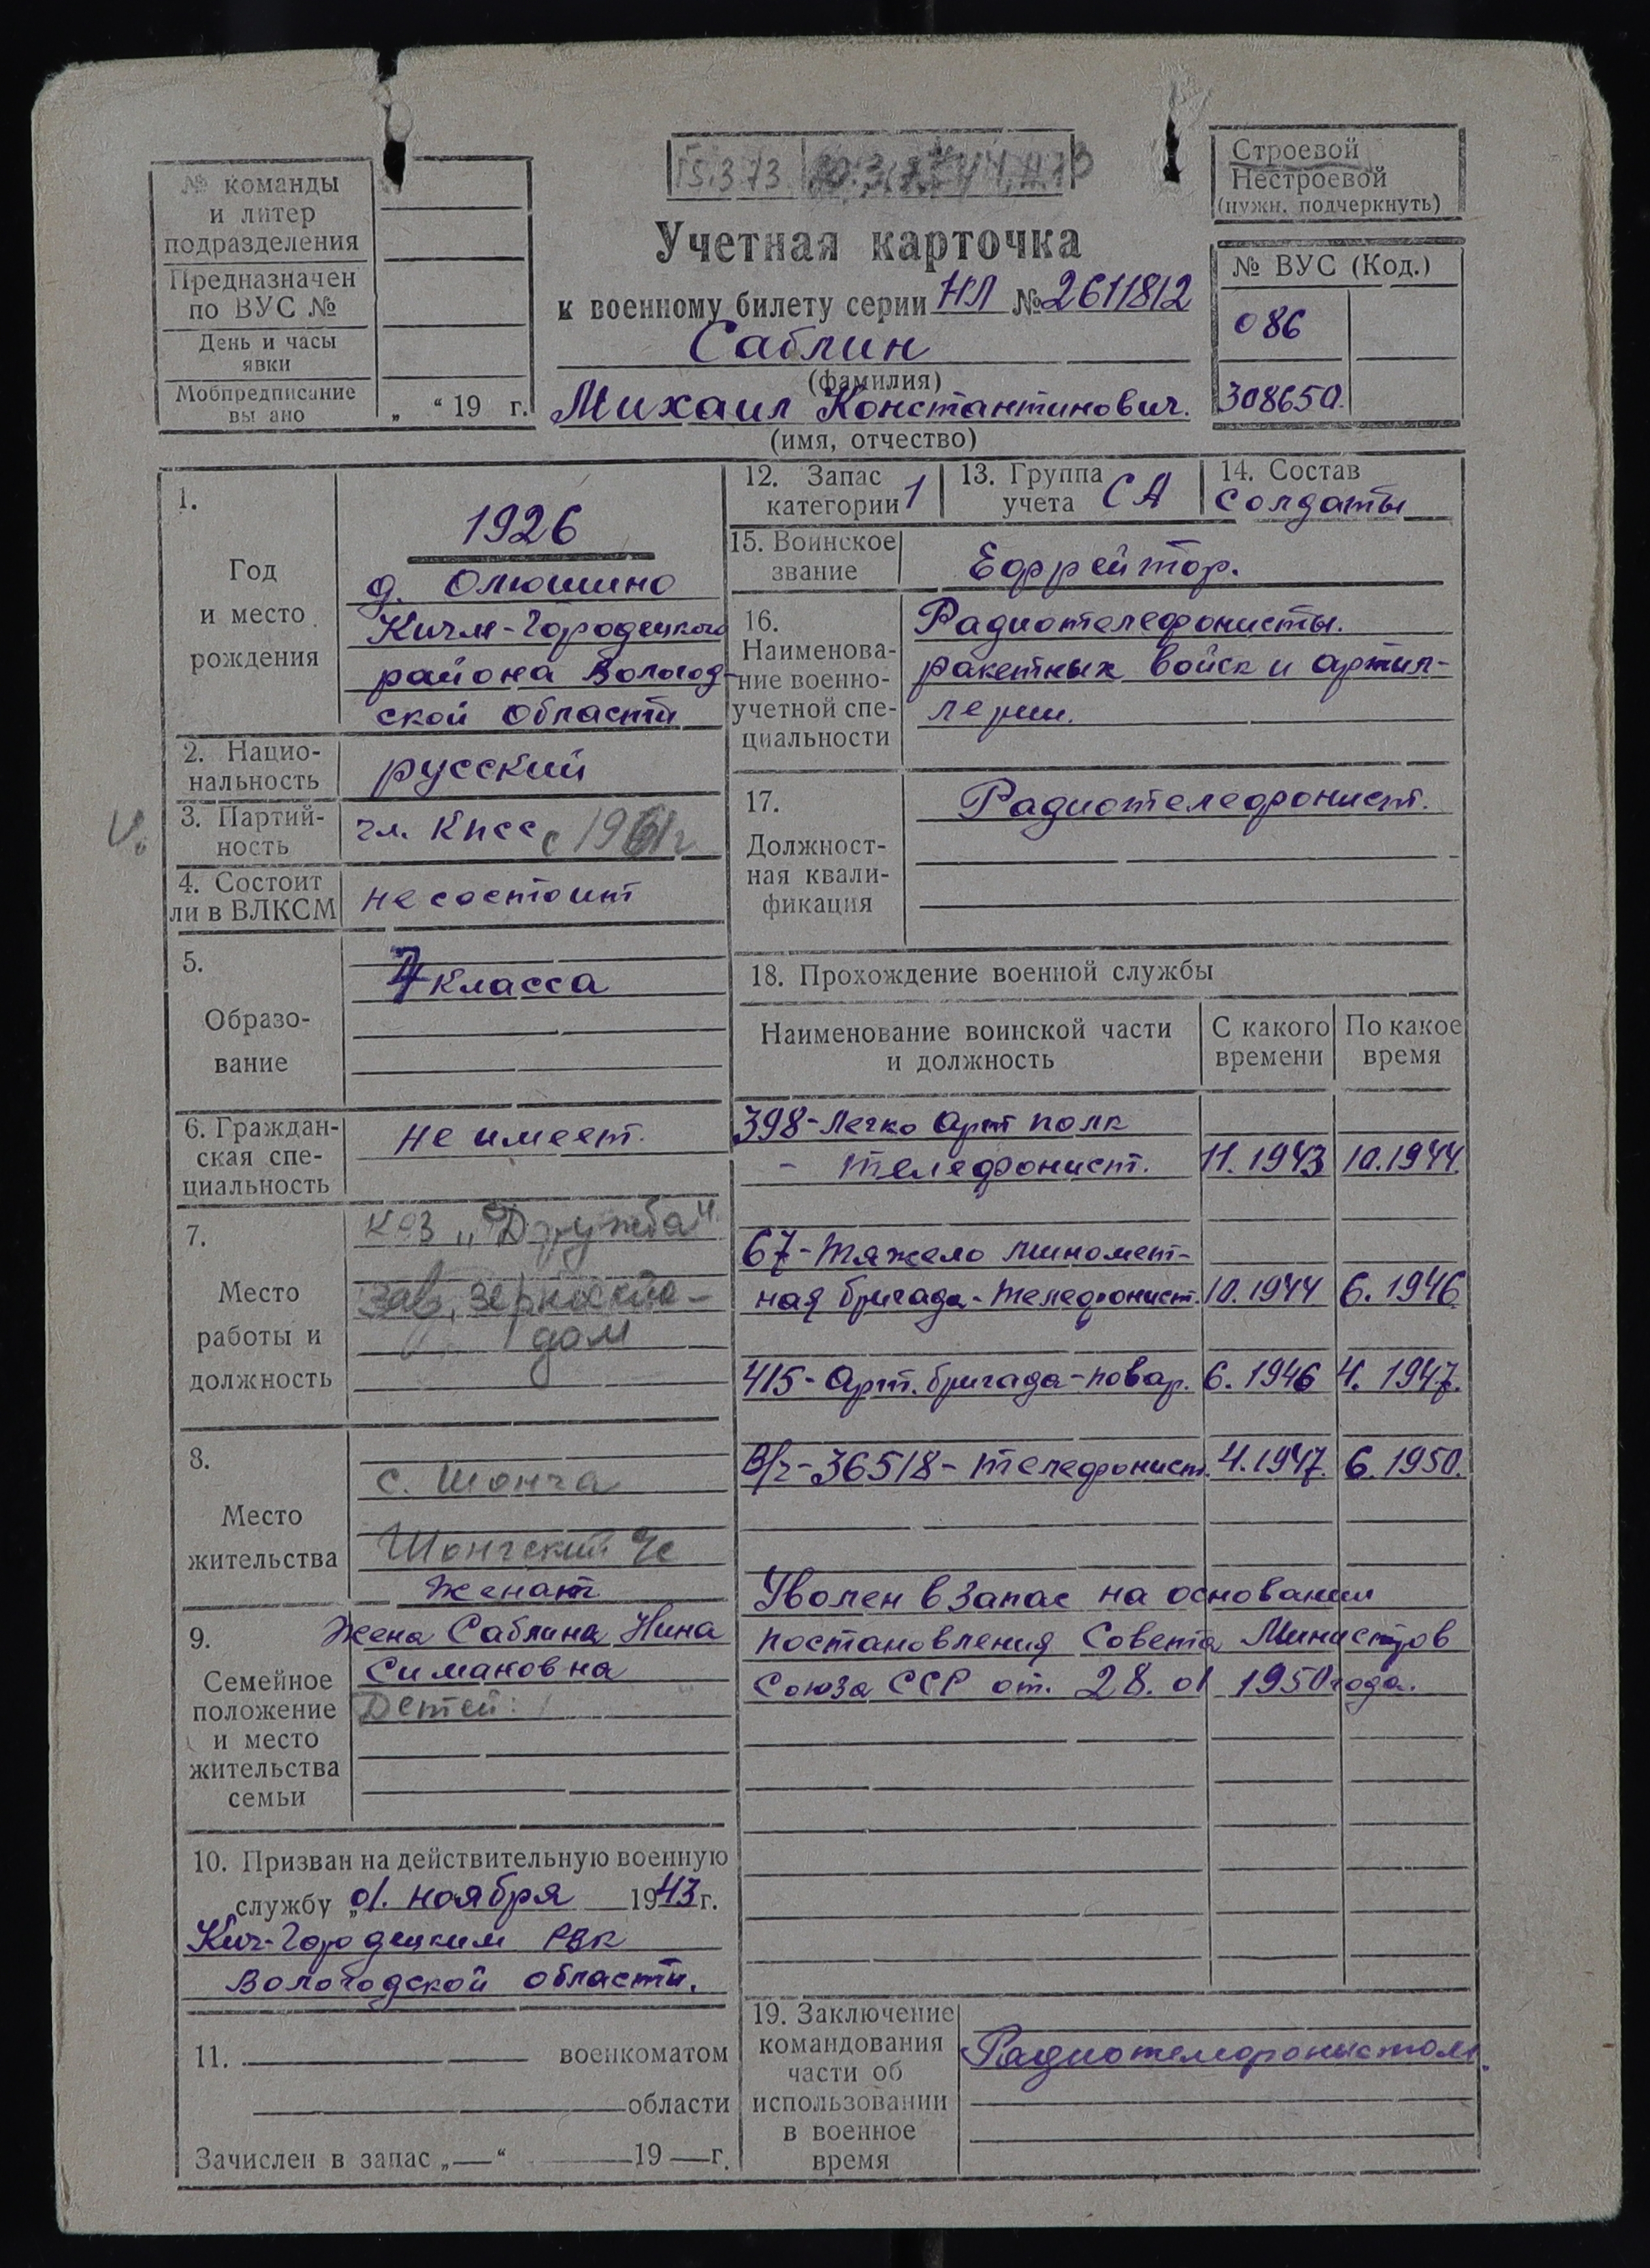 № команды
и литер
подразделения
Предназначен
по ВУС №
День и часы
явки
Мобпредписание
вы ано „ “ 19 г.
15.3.73
Учетная карточка
к военному билету серии НЛ № 2611812
Саблин
(фамилия)
Михаил Константинович.
(имя, отчество)
Строевой
Нестроевой
(нужн. подчеркнуть)
№ ВУС (Код.)
086
308650.
1.
Год
и место
рождения
1926
д. Олюшино
Кичм-Городецкого
района Вологод-
ской области
2. Нацио-
нальность
русский
3. Партий-
ность
чл. КПСС с 1961г
4. Состоит
ли в ВЛКСМ
не состоит
5.
Образо-
вание
7 класса
6. Граждан-
ская спе-
циальность
не имеет.
7.
Место
работы и
должность
к-з „Дружба"
зав. зерноскла-
дом
8.
Место
жительства
с. Шонга
Шонгский с/с
9.
Семейное
положение
и место
жительства
семьи
женат
Жена Саблина Нина
Симановна
Детей:
10. Призван на действительную военную
службу „01. ноября 1943 г.
Кич-Городецким РВК
Вологодской области.
11. военкоматом
области
Зачислен в запас „—“ 19 — г.
12. Запас
категории 1
13. Группа
учета СА
14. Состав
солдаты
15. Воинское
звание
Ефрейтор.
16.
Наименова-
ние военно-
учетной спе-
циальности
Радиотелефонисты.
ракетных войск и артил-
лерии.
17.
Должност-
ная квали-
фикация
Радиотелефонист.
18. Прохождение военной службы
Наименование воинской части
и должность
С какого
времени
По какое
время
398-Легко Арт полк
- телефонист. 11.1943 10.1944.
67-Тяжело миномет-
ная бригада-телефонист. 10.1944 6.1946
415-Арт. бригада-повар. 6.1946 4.1947.
В/ч-36518-телефонист. 4.1947. 6.1950.
Уволен в запас на основании
постановления Совета Министров
Союза ССР от. 28.01 1950 года.
19. Заключение
командования
части об
использовании
в военное
время
Радиотелефонистом.